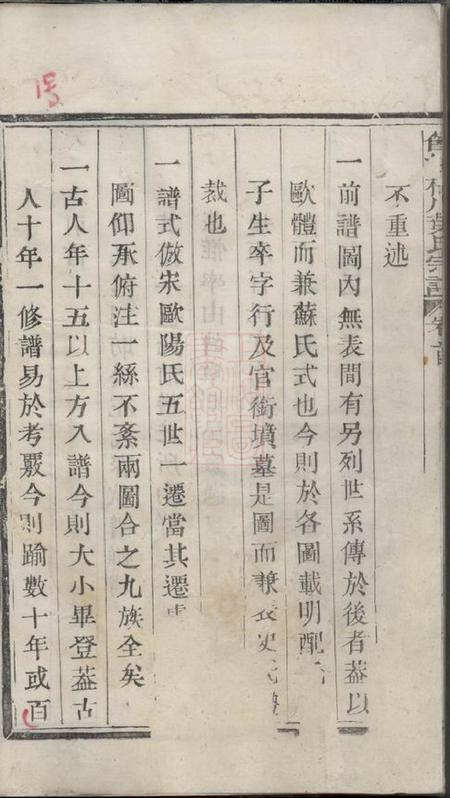 不重述
一前譜圖內無表間有另列世系傳於後者葢以
歐體而兼蘇氏式也今則於各圖載明配
子生卒字行及官銜墳墓是圖而兼表史氏
裁也
一譜式倣宋歐陽氏五世一遷當其遷
圖仰承俯注一絲不紊兩圖合之九族全矣
一古人年十五以上方入譜今則大小畢登葢古
人十年一修譜易於考覈今則踰數十年或百
氏宗譜 卷首